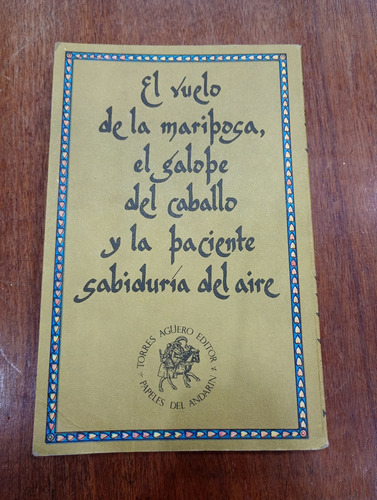 El vuelo
de la mariposa,
el galope
del caballo
y la paciente
sabiduría del aire
TORRES AGÜERO EDITOR
PAPELES DEL ANDARIN